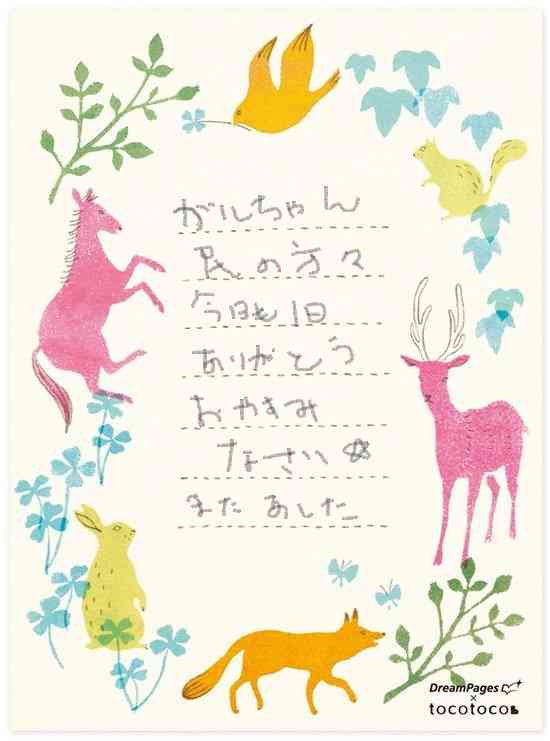 ガルちゃん
民の方々
今日も1日
ありがとう
おやすみ
なさい☆
またあした
DreamPages
×
tocotoco